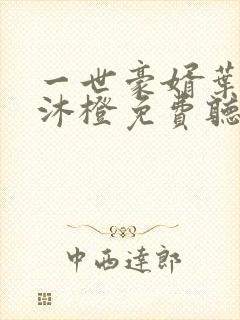 一世豪婿葉
沐橙免費聽
中西達郎